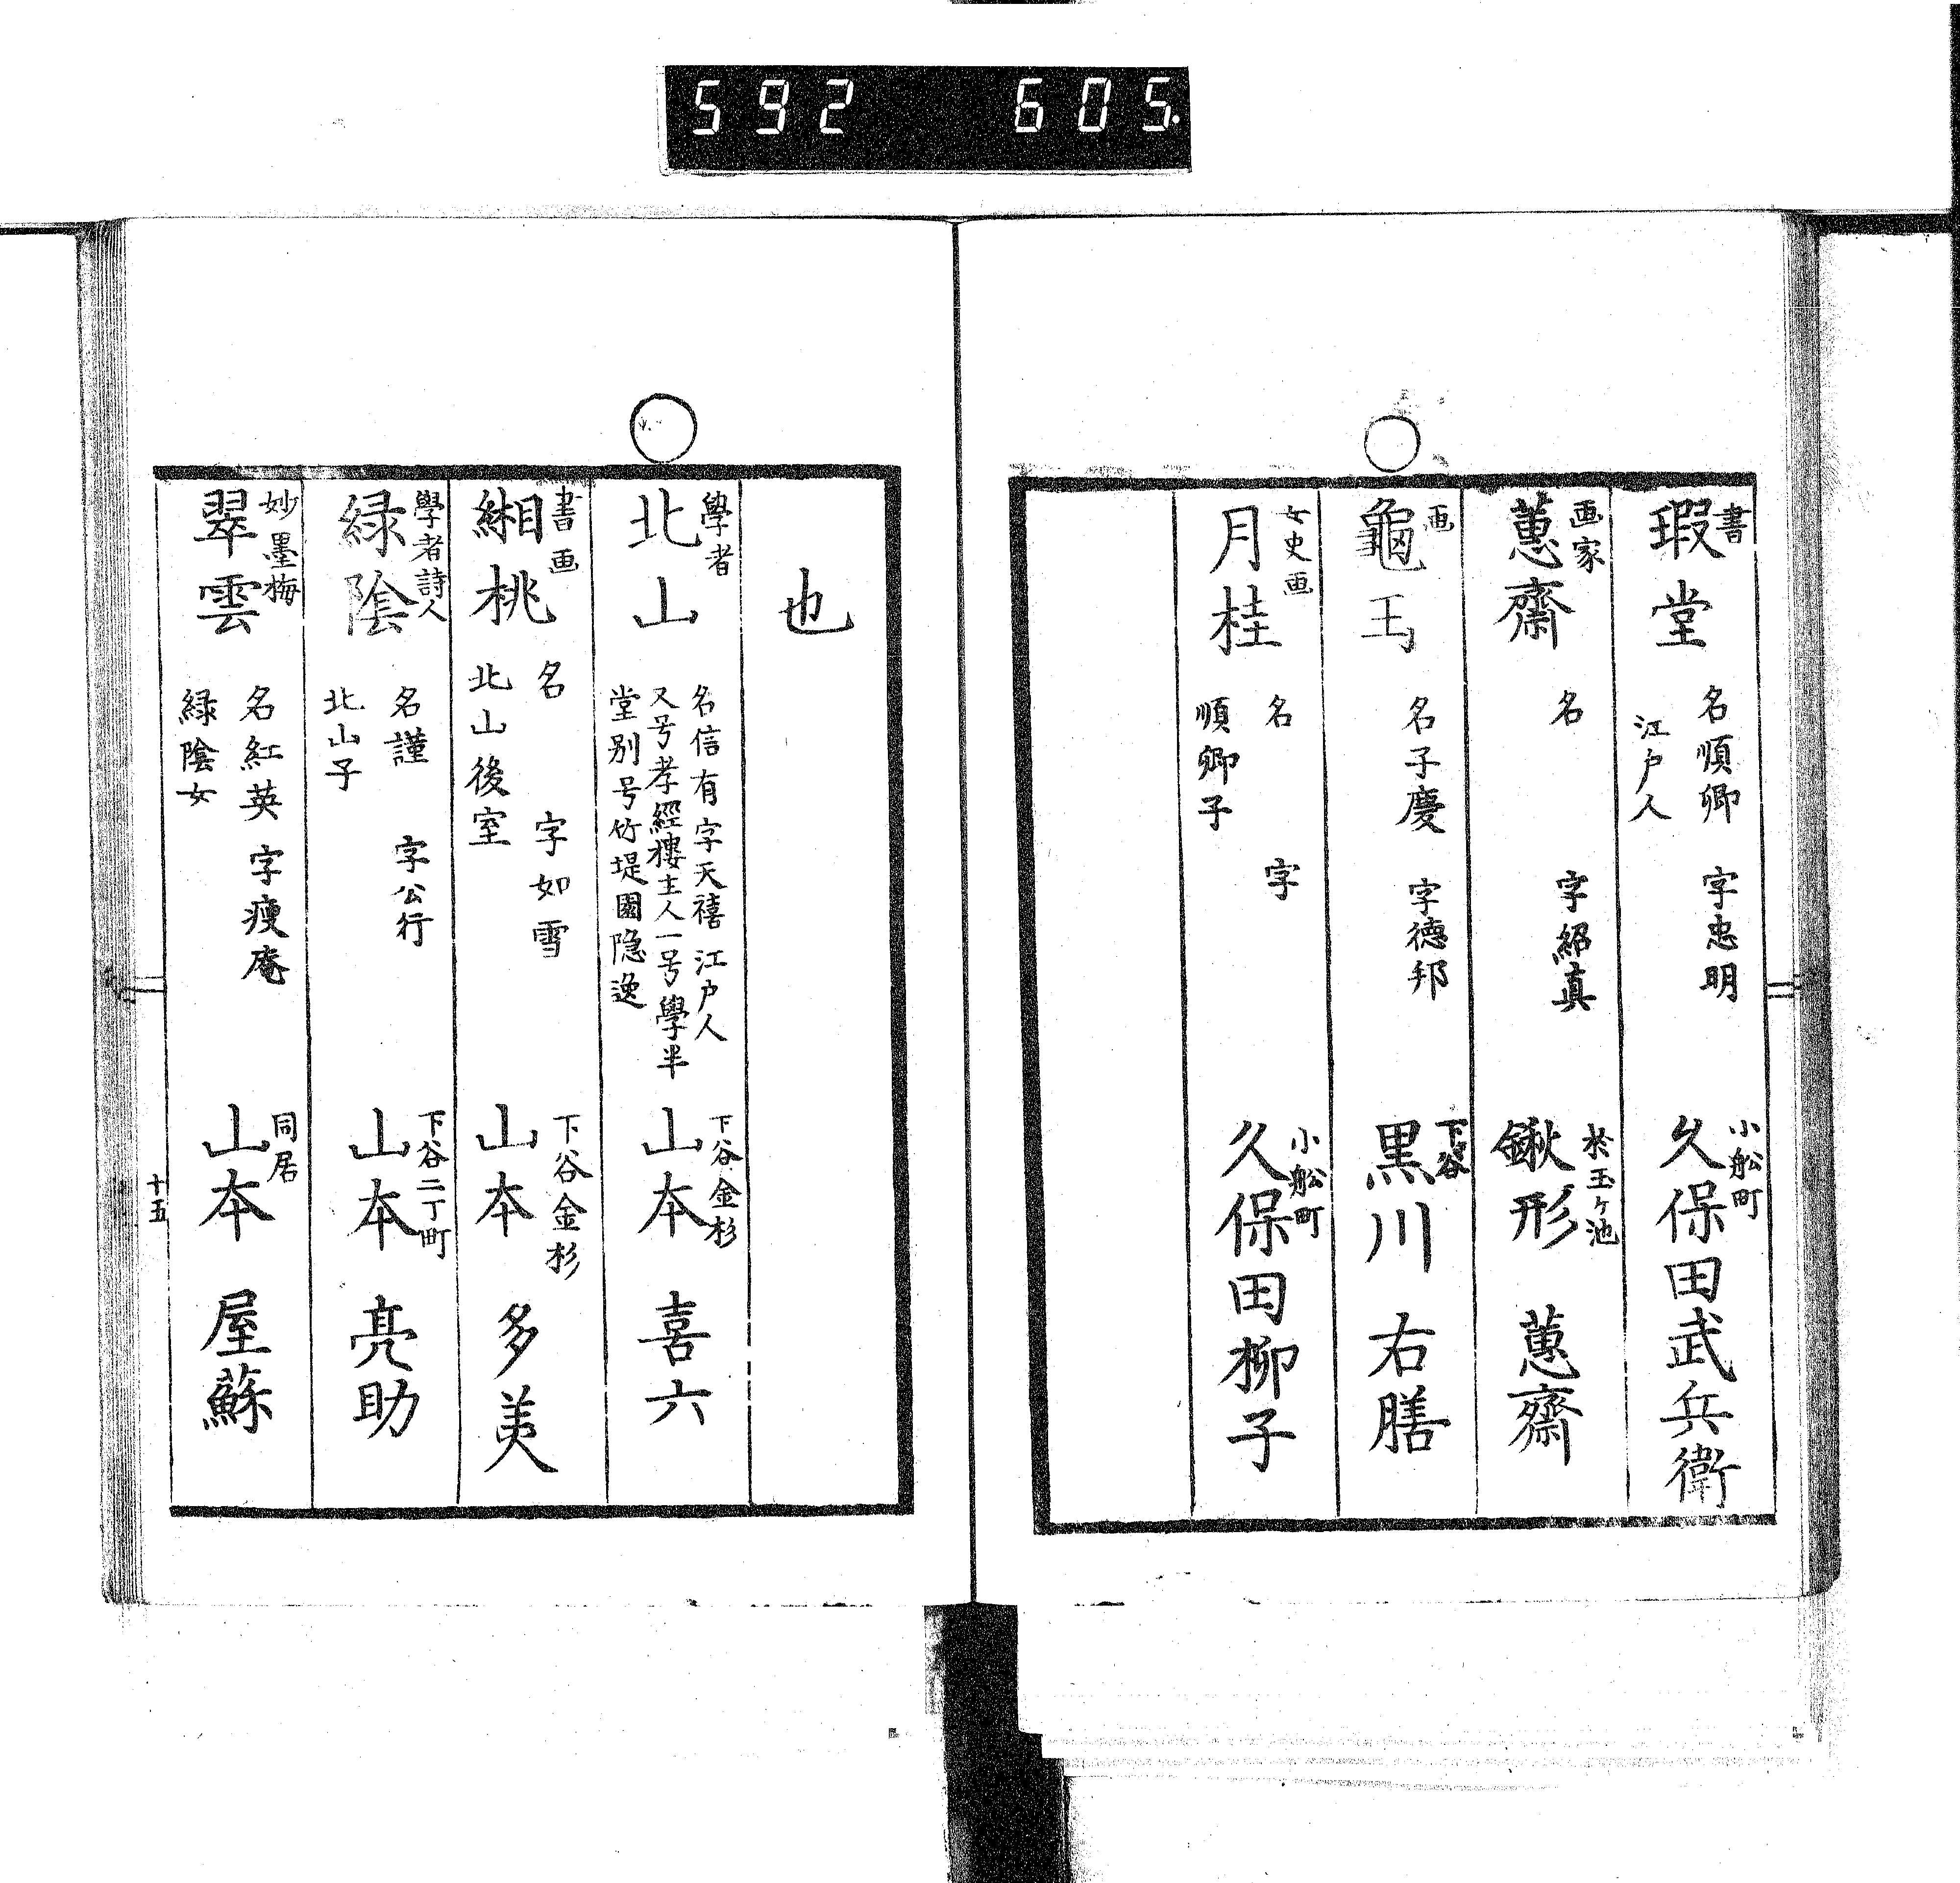 592 605.
書
瑕堂
名順卿 字忠明
江戸人
小舩町
久保田武兵衛
画家
蕙齋
名 字紹真
於玉ヶ池
鍬形 蕙齋
画
龜玉
名子慶 字徳邦
下谷
黒川 右膳
女史画
月桂
名 字
順卿子
小舩町
久保田柳子
也
學者
北山
名信有 字天禧 江戸人
又号孝經樓主人一号學半
堂別号竹堤園隐逸
下谷金杉
山本 喜六
書画
緗桃
名 字如雪
北山後室
下谷金杉
山本 多美
學者詩人
緑陰
名謹 字公行
北山子
下谷二丁町
山本 亮助
妙墨梅
翠雲
名紅英 字瘦庵
緑陰女
同居
山本 屋蘇
十五